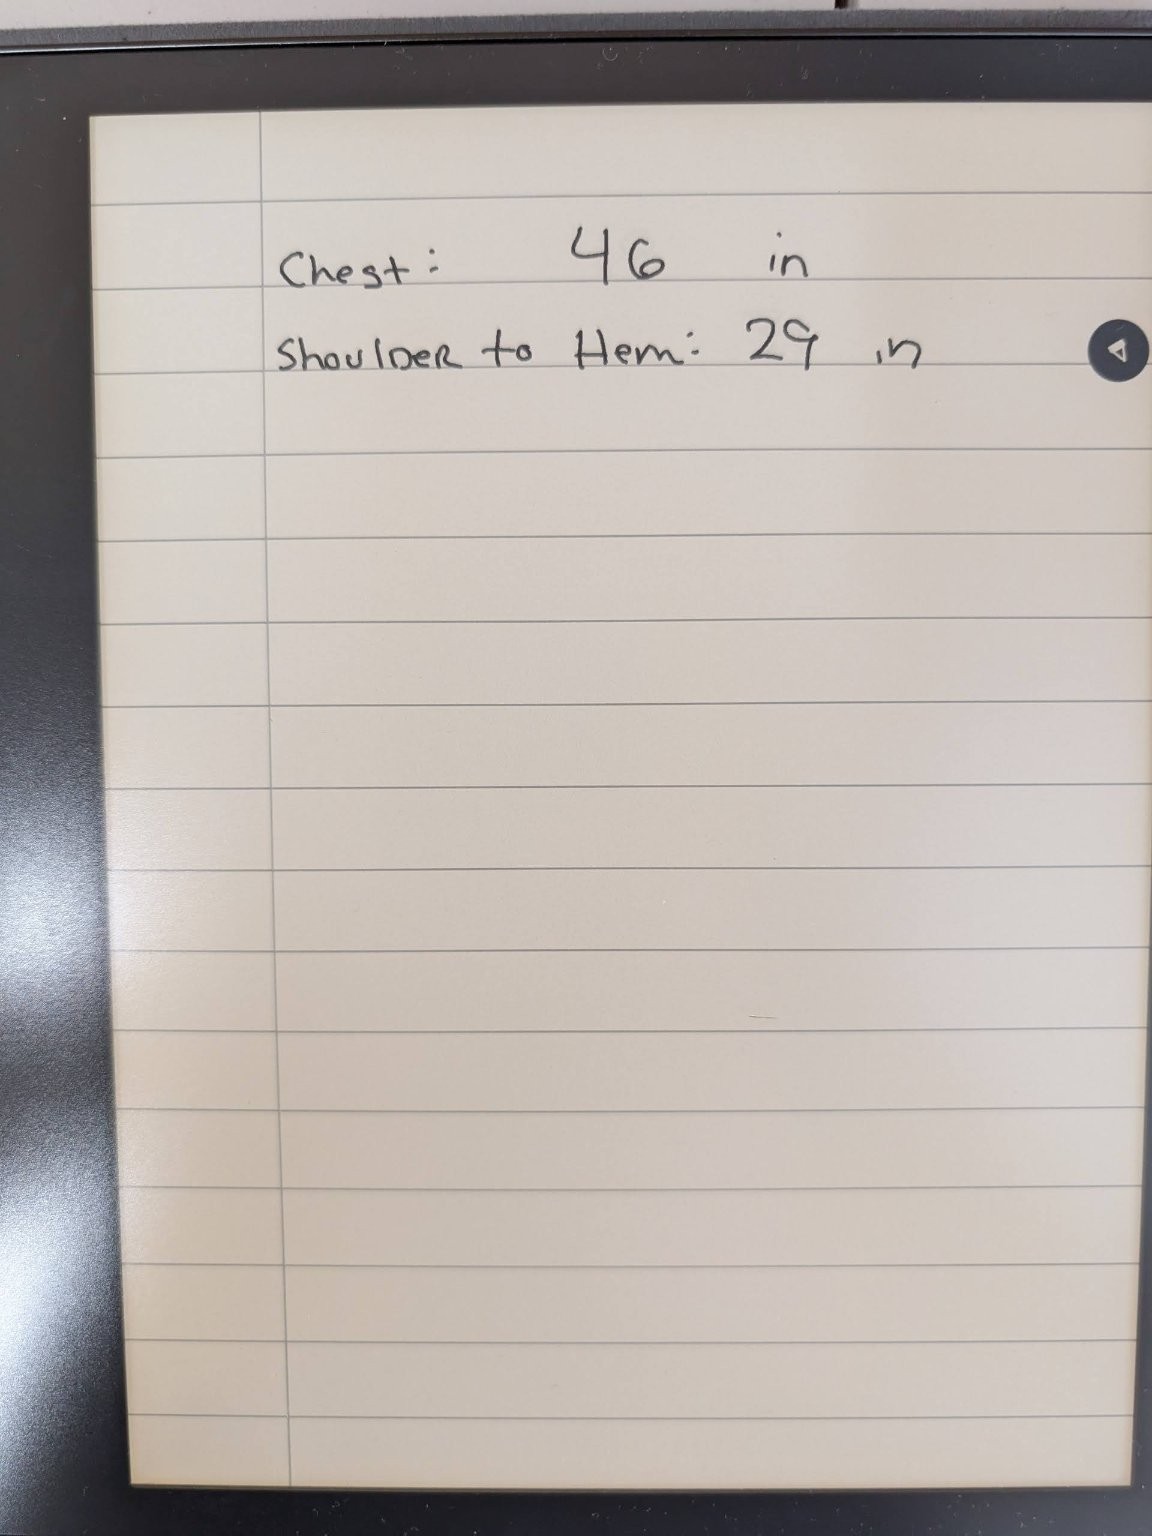 Chest: 46 in
Shoulder to Hem: 29 in